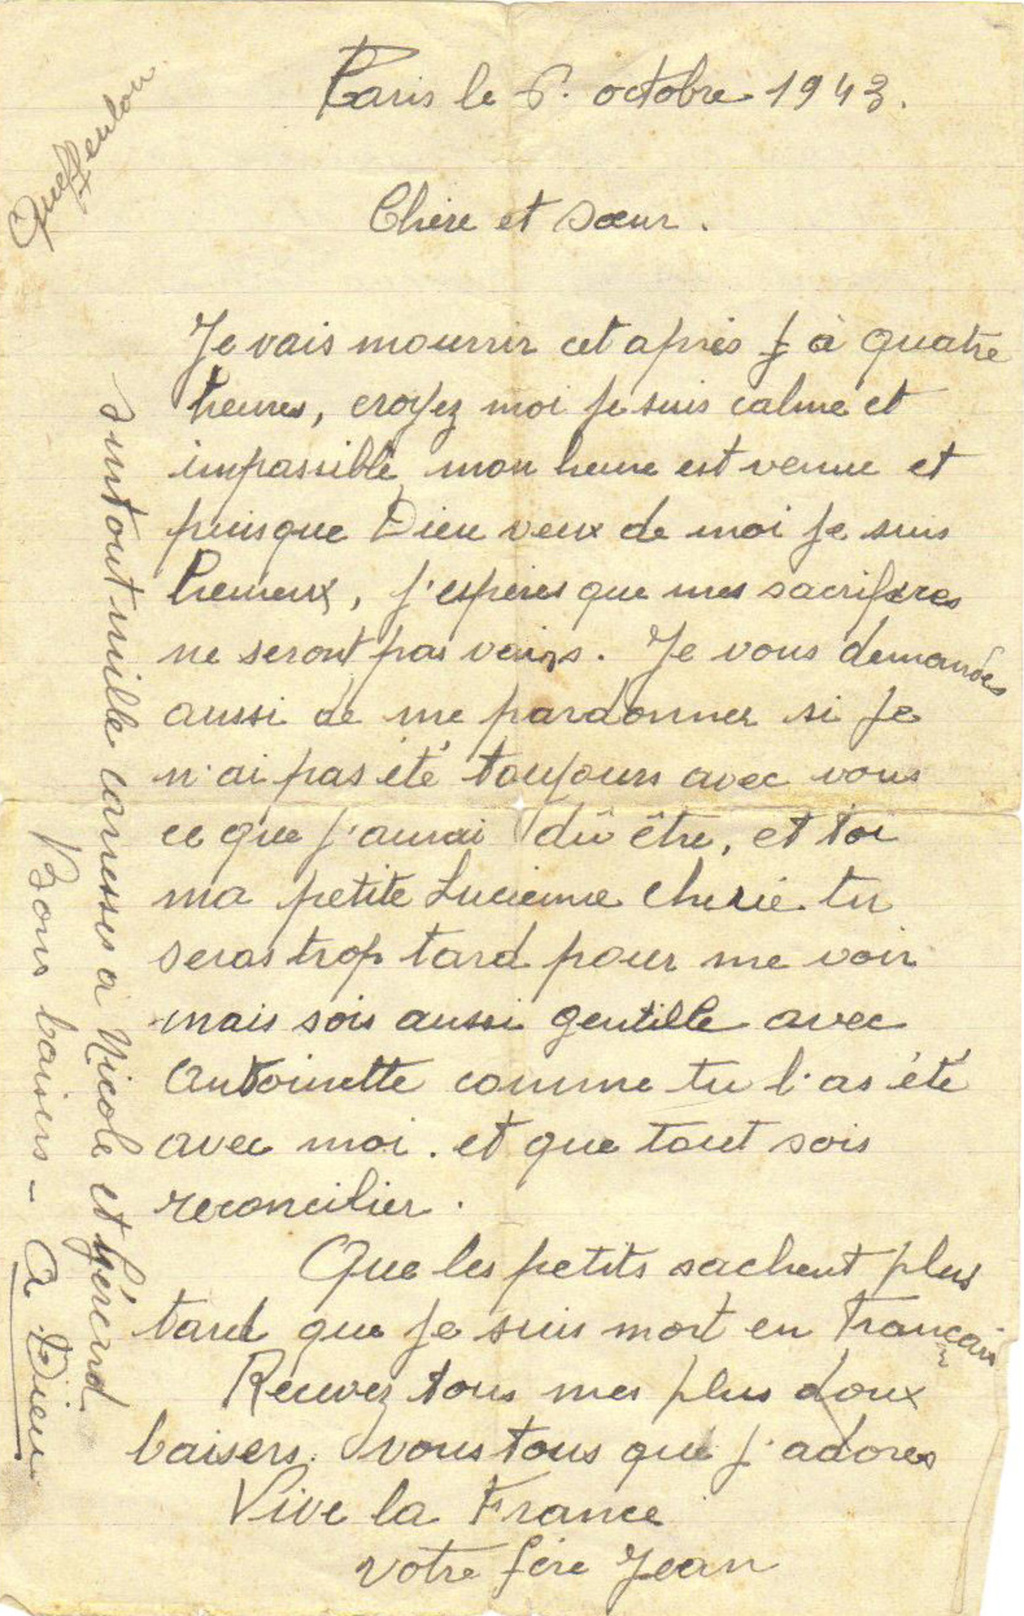 Queffeulou
Paris le 6. octobre 1943.
Chère et Sœur.
Je vais mourrir cet après à quatre
heures, croyez moi je suis calme et
impassible mon heure est venue et
puisque Dieu veux de moi je suis
heureux, j'espères que mes sacrifices
ne seront pas vains. Je vous demandes
aussi de me pardonner si je
n'ai pas été toujours avec vous
ce que j'aurai dû être, et toi
ma petite Lucienne cherie tu
seras trop tard pour me voir
mais sois aussi gentille avec
Antoinette comme tu l'as été
avec moi. et que tout sois
reconcilier.
Que les petits sachent plus
tard que je suis mort en Français
Recevez tous mes plus doux
baisers. vous tous que j'adores
Vive la France
votre fère Jean
surtout mille caresses a Nicole et Gérard
Bons baisers - A Dieu